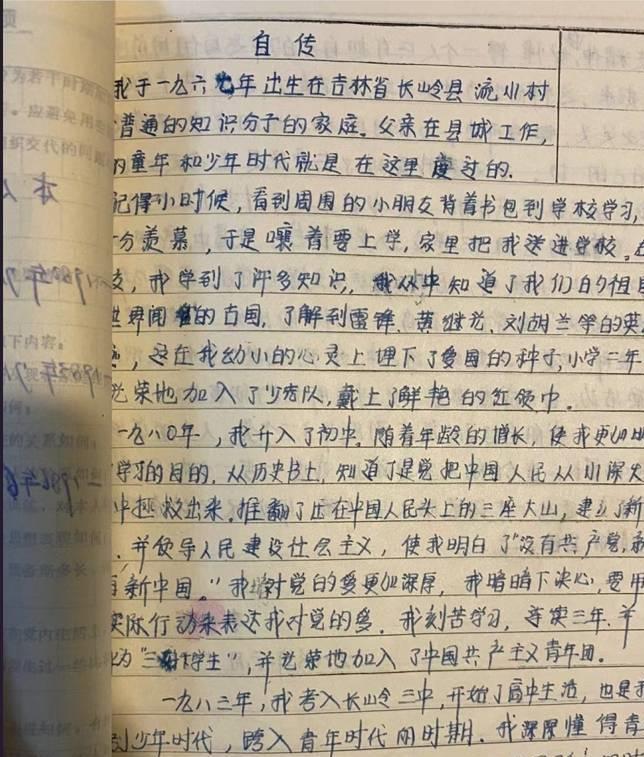 自传
我于一九六九年出生在吉林省长岭县流水村
普通的知识分子的家庭。父亲在县城工作,
的童年和少年时代就是在这里度过的.
记得小时候,看到周围的小朋友背着书包到学校学习,
分羡慕,于是嚷着要上学,家里把我送进学校。
校,我学到了许多知识,我从中知道了我们的祖国
世界闻的古国,了解到雷锋、黄继光、刘胡兰等的英
,这在我幼小的心灵上埋下了爱国的种子,小学二年
光荣地加入了少先队,戴上了鲜艳的红领巾.
一九八〇年,我升入了初中,随着年龄的增长,使我更加
学习的目的,从历史书上,知道了是党把中国人民从水深火
中拯救出来,推翻了压在中国人民头上的三座大山,建立了新
,并领导人民建设社会主义,使我明白了"没有共产党,就
有新中国。"我对党的爱更加深厚,我暗暗下决心,要用
实际行动来表达我对党的爱.我刻苦学习,连续三年.
为"三好学生",并光荣地加入了中国共产主义青年团.
一九八三年,我考入长岭三中,开始了高中生活,也是我
少年时代,跨入青年时代的时期.我深深懂得青
一1980年9
一1983年9
一1986年
下内容:
应避免用